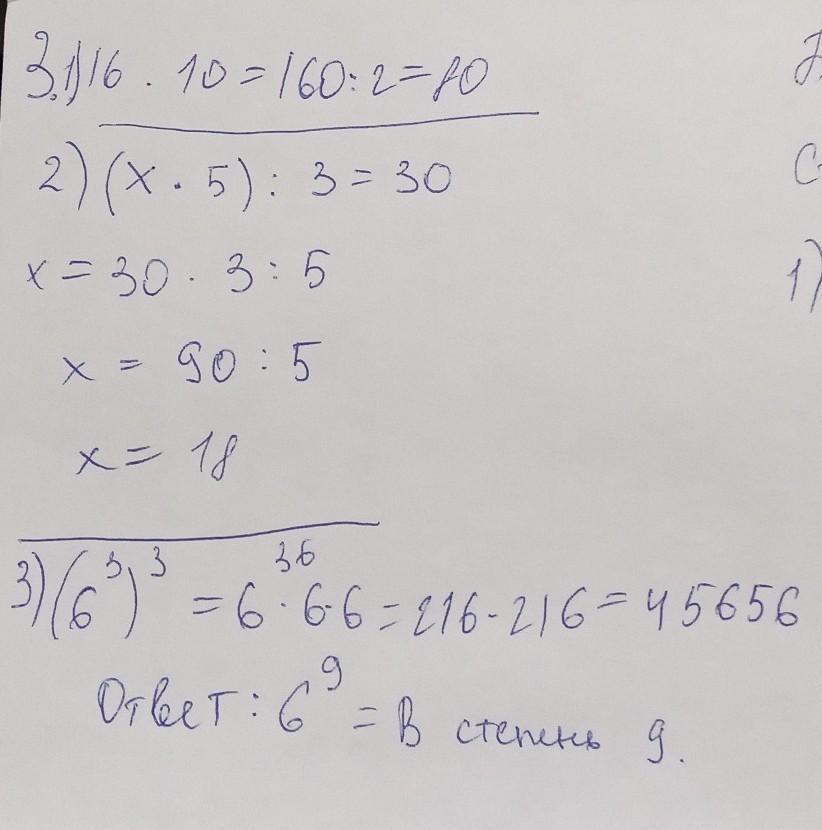 3.1) 16 · 10 = 160 : 2 = 80
2) (x · 5) : 3 = 30
x = 30 · 3 : 5
x = 90 : 5
x = 18
3) (6³)³ = 6 · 6 · 6 = 216 · 216 = 45656
36
Ответ: 6⁹ = В степень 9.
С
1)